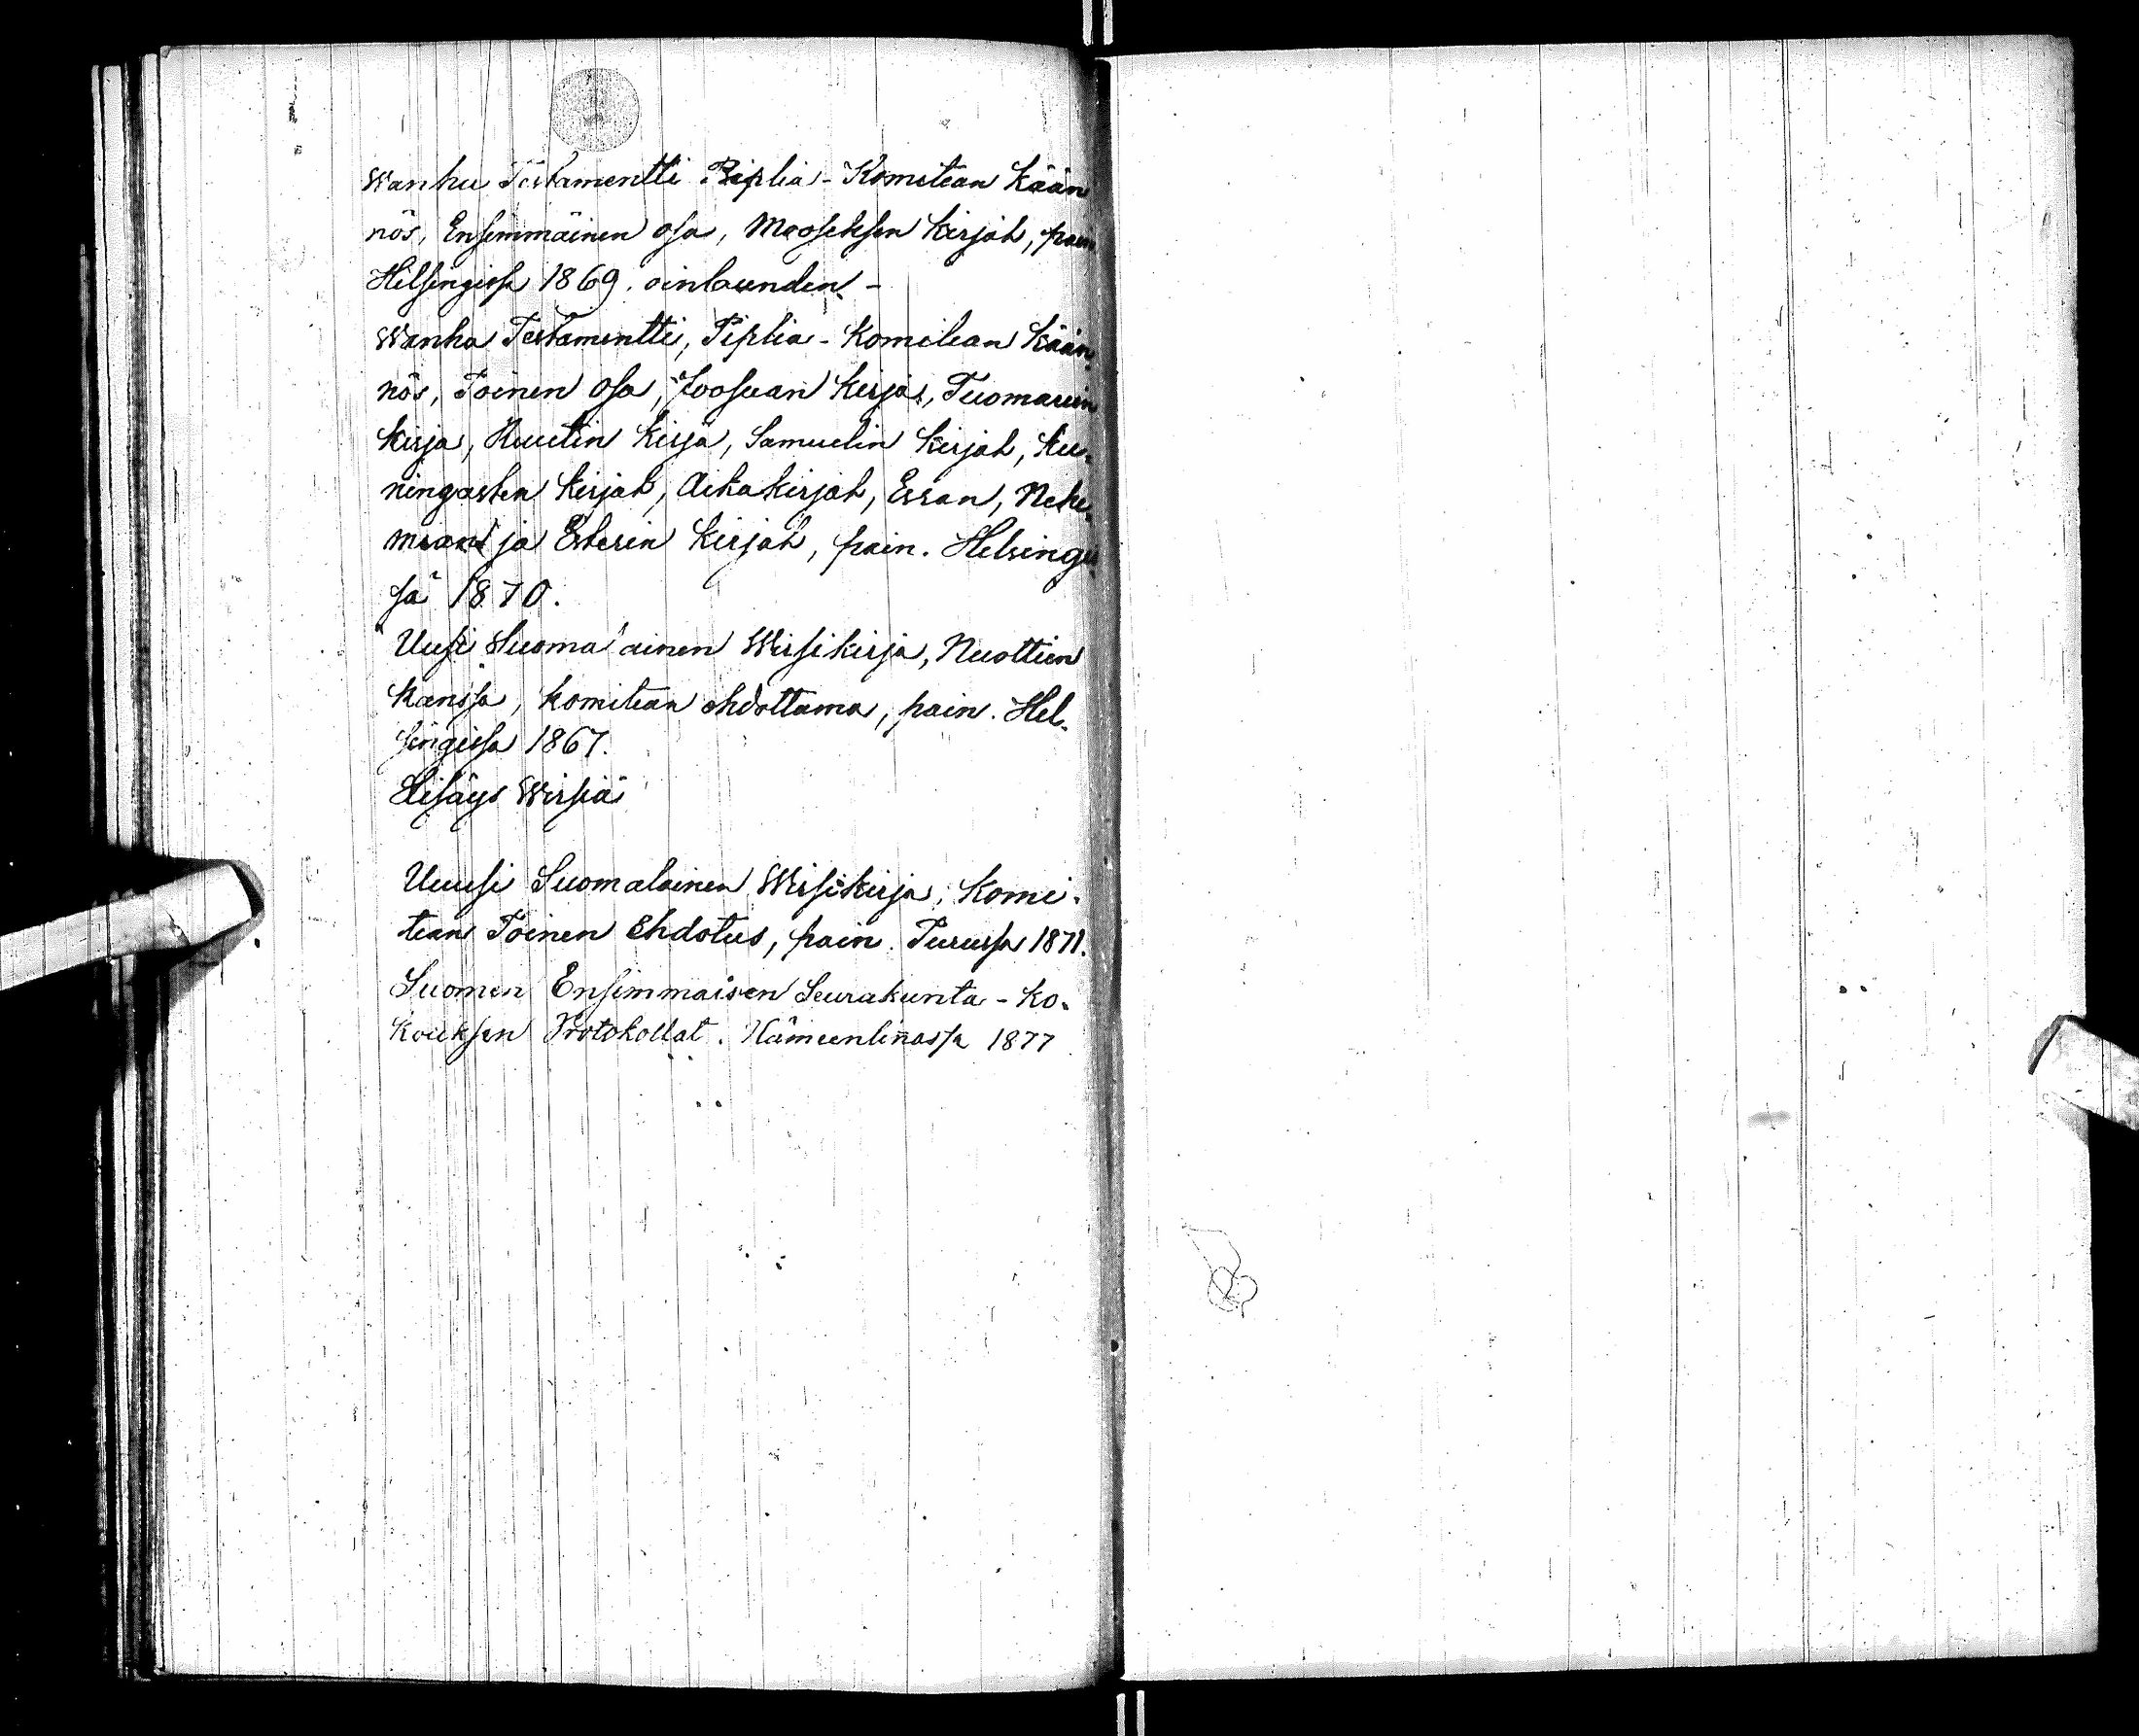 Wanha Testamentti Piplia-Komitean Kään
nös, Ensimmäinen osa, Mooseksen Kirjat, pain.
Helsingissä 1869. oinbunden. -
Wanha Testamentti, Piplia-Komitean Kään
nös, Toinen osa, Joosuan kirja, Tuomarein
kirja, Ruutin kirja, Samuelin kirjat, Ku-
ningasten kirjat, Aikakirjat, Esran, Nehe-
mian ja Esterin kirjat, pain. Helsingis
sä 1870.
Uusi Suoma'ainen Wirsikirja, Nuottien
Kanssa, komitean ehdottama, pain. Hel-
singissä 1867.
Lisäys Wirsiä
Uuusi Suomalainen Wirsikirja, Komi-
tean Toinen Ehdotus, pain. Turussa 1871.
Suomen Ensimmaisen Seurakunta-Ko-
kouksen Protokollat. Hämeenlinnassa 1877